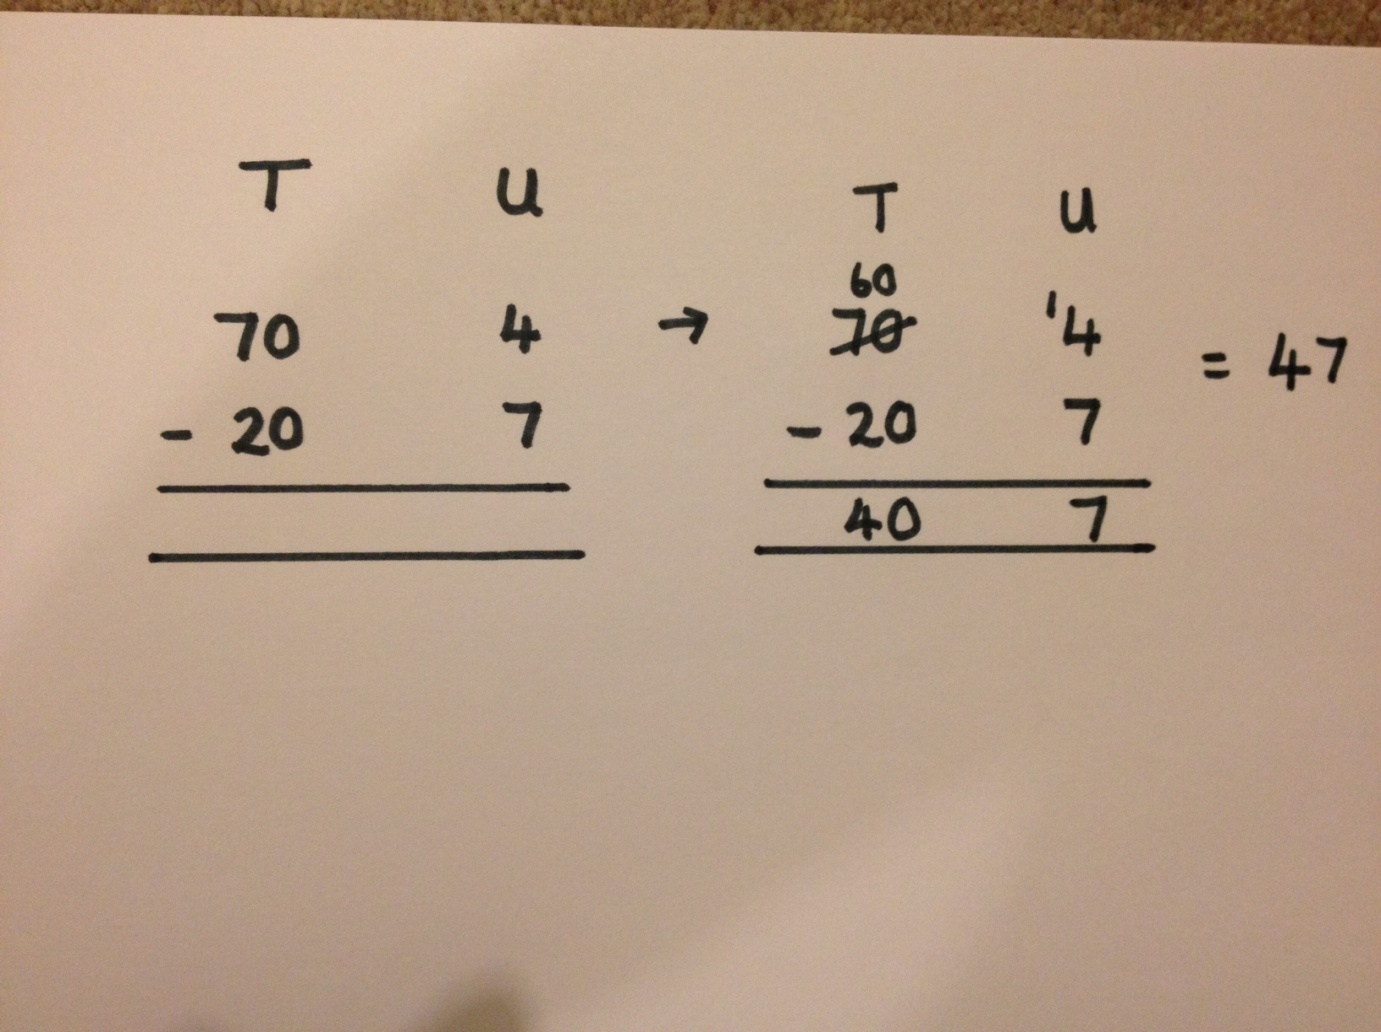 T U
70 4
- 20 7
→
T U
60
70 ¹4
- 20 7
40 7
= 47